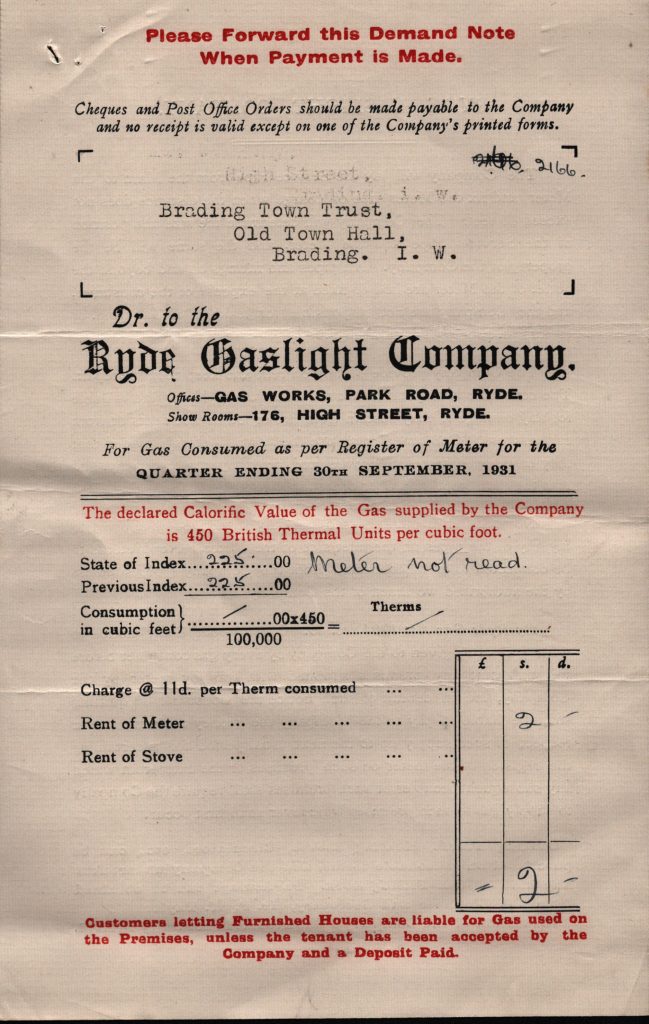 Please Forward this Demand Note
When Payment is Made.
Cheques and Post Office Orders should be made payable to the Company
and no receipt is valid except on one of the Company's printed forms.
2166.
High Street,
Brading. I. W.
Brading Town Trust,
Old Town Hall,
Brading. I. W.
Dr. to the
Ryde Gaslight Company.
Offices—GAS WORKS, PARK ROAD, RYDE.
Show Rooms—176, HIGH STREET, RYDE.
For Gas Consumed as per Register of Meter for the
QUARTER ENDING 30TH SEPTEMBER, 1931
The declared Calorific Value of the Gas supplied by the Company
is 450 British Thermal Units per cubic foot.
State of Index....225....00 Meter not read.
Previous Index...225....00
Consumption in cubic feet} ...../.......00x450 / 100,000 = Therms /
£ s. d.
Charge @ 11d. per Therm consumed ... ...
Rent of Meter ... ... ... ... ... 2 -
Rent of Stove ... ... ... ... ...
= 2 -
Customers letting Furnished Houses are liable for Gas used on
the Premises, unless the tenant has been accepted by the
Company and a Deposit Paid.